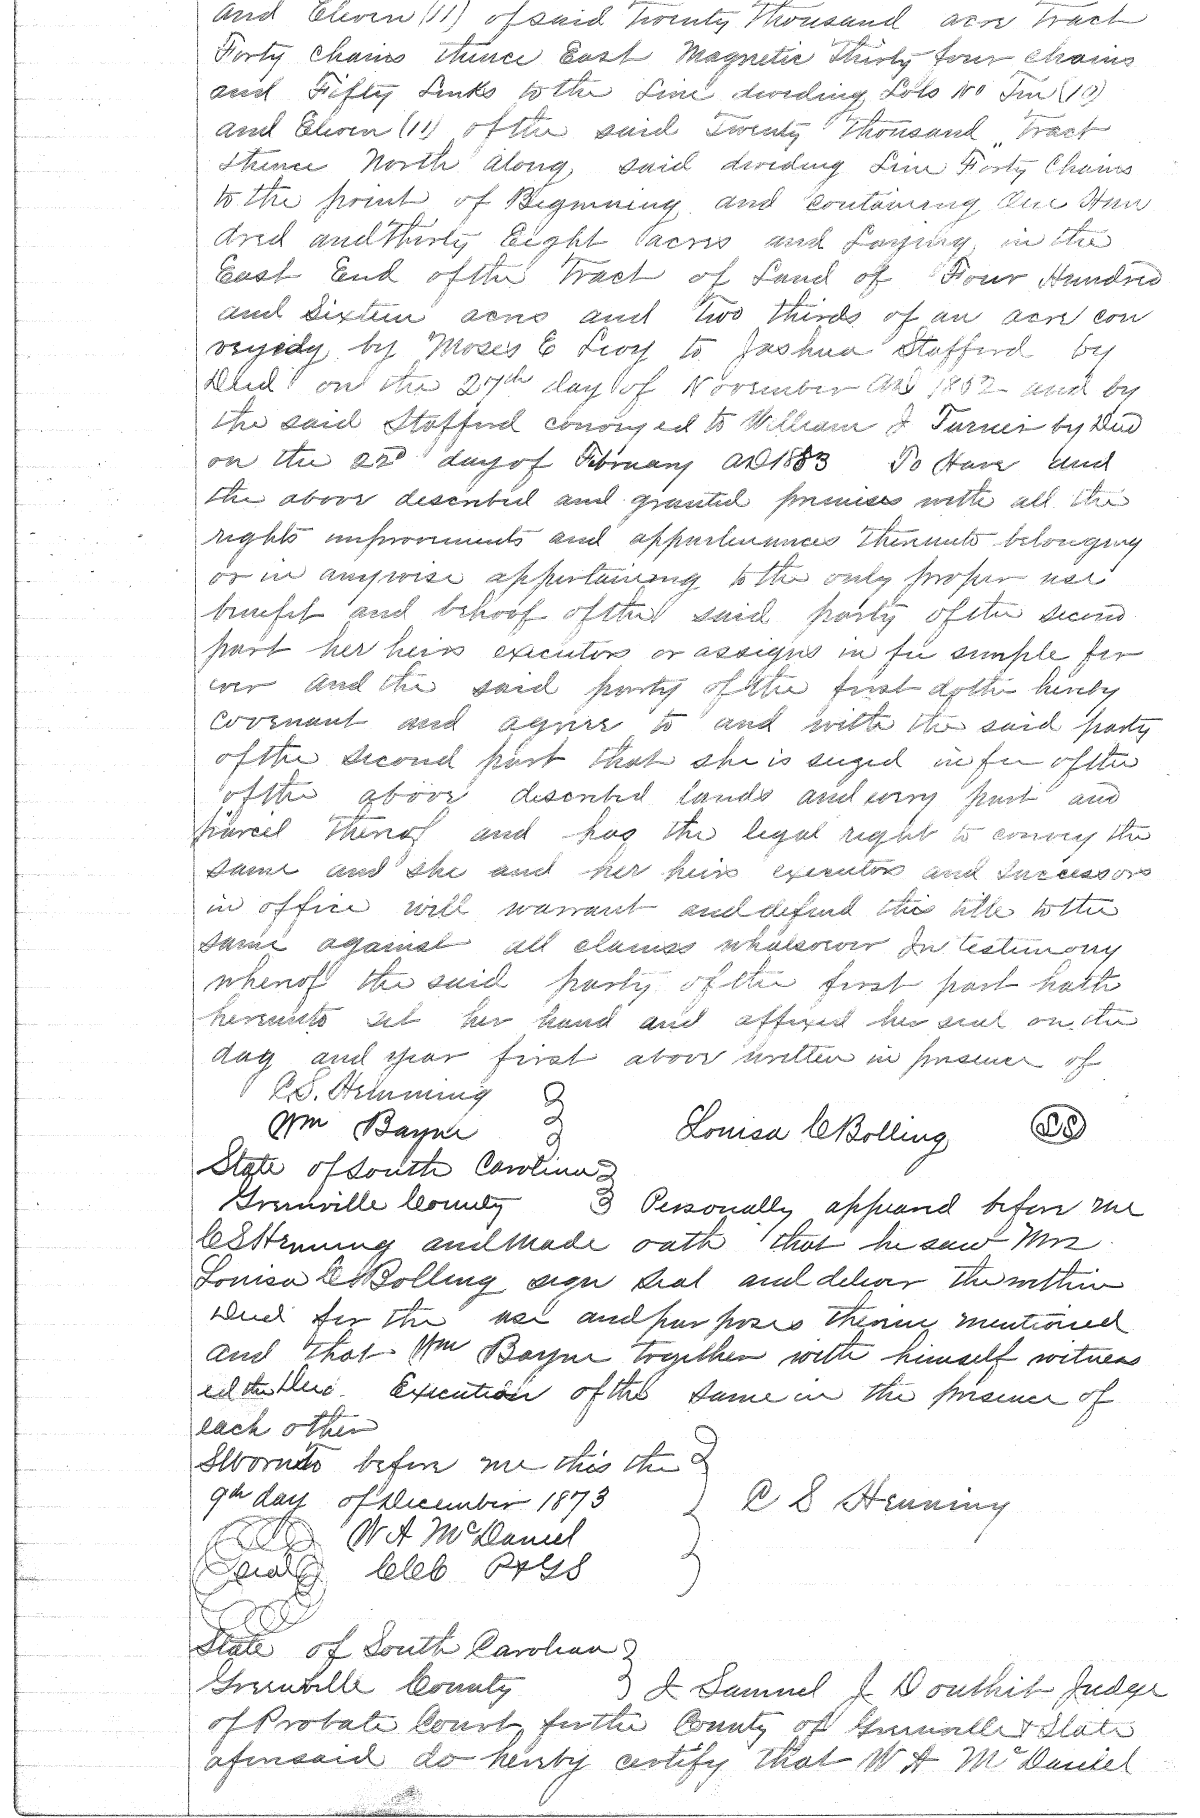 and Eleven (11) of said Twenty Thousand acre Tract
Forty chains thence East Magnetic Thirty four chains
and Fifty Links to the Line dividing Lots No Ten (10)
and Eleven (11) of the said Twenty Thousand " Tract
thence North along said dividing Line Forty Chains
to the point of Beginning and containing One Hun
dred and Thirty Eight acres and Laying in the
East End of the Tract of Land of Four Hundred
and Sixteen acres and Two thirds of an acre con
veyedy by Moses E Levy to Jashua Stafford by
Deed on the 27th day of November AD 1852 and by
the said Stafford conveyed to William J Turner by Deed
on the 22d day of February AD 1853 To Have and
the above described and granted premises with all the
rights improvements and appurtenances thereunto belonging
or in anywise appertaining to the only proper use
benefit and behoof of the said party of the second
part her heirs executors or assigns in fee simple for
ever And the said party of the first doth hereby
covenant and agree to and with the said party
of the second part that she is seized in fee of the
of the above described lands and every part and
parcel thereof and has the legal right to convey the
same and she and her heirs executors and successors
in office will warrant and defend this title to the
same against all claims whatsoever In testimony
whereof the said party of the first part hath
hereunto set her hand and affixed her seal on the
day and year first above written in presence of
C.S. Hemming
Wm Bayne Louisa C Bolling LS
State of South Carolina
Greenville County Personally appeared before me
C S Henning and Made oath that he saw Mrs
Louisa C Bolling sign seal and deliver the within
Deed for the use and purposes therein mentioned
and that Wm Bayne together with himself witness
ed the Due Execution of the same in the presence of
each other
Sworn to before me this the
9th day of December 1873 C S Henning
W A McDaniel
Seal CCC P & GS
State of South Carolina
Greenville County I Samuel J Douthit Judge
of Probate Court for the County of Greenville & State
aforesaid do hereby certify that W A McDaniel